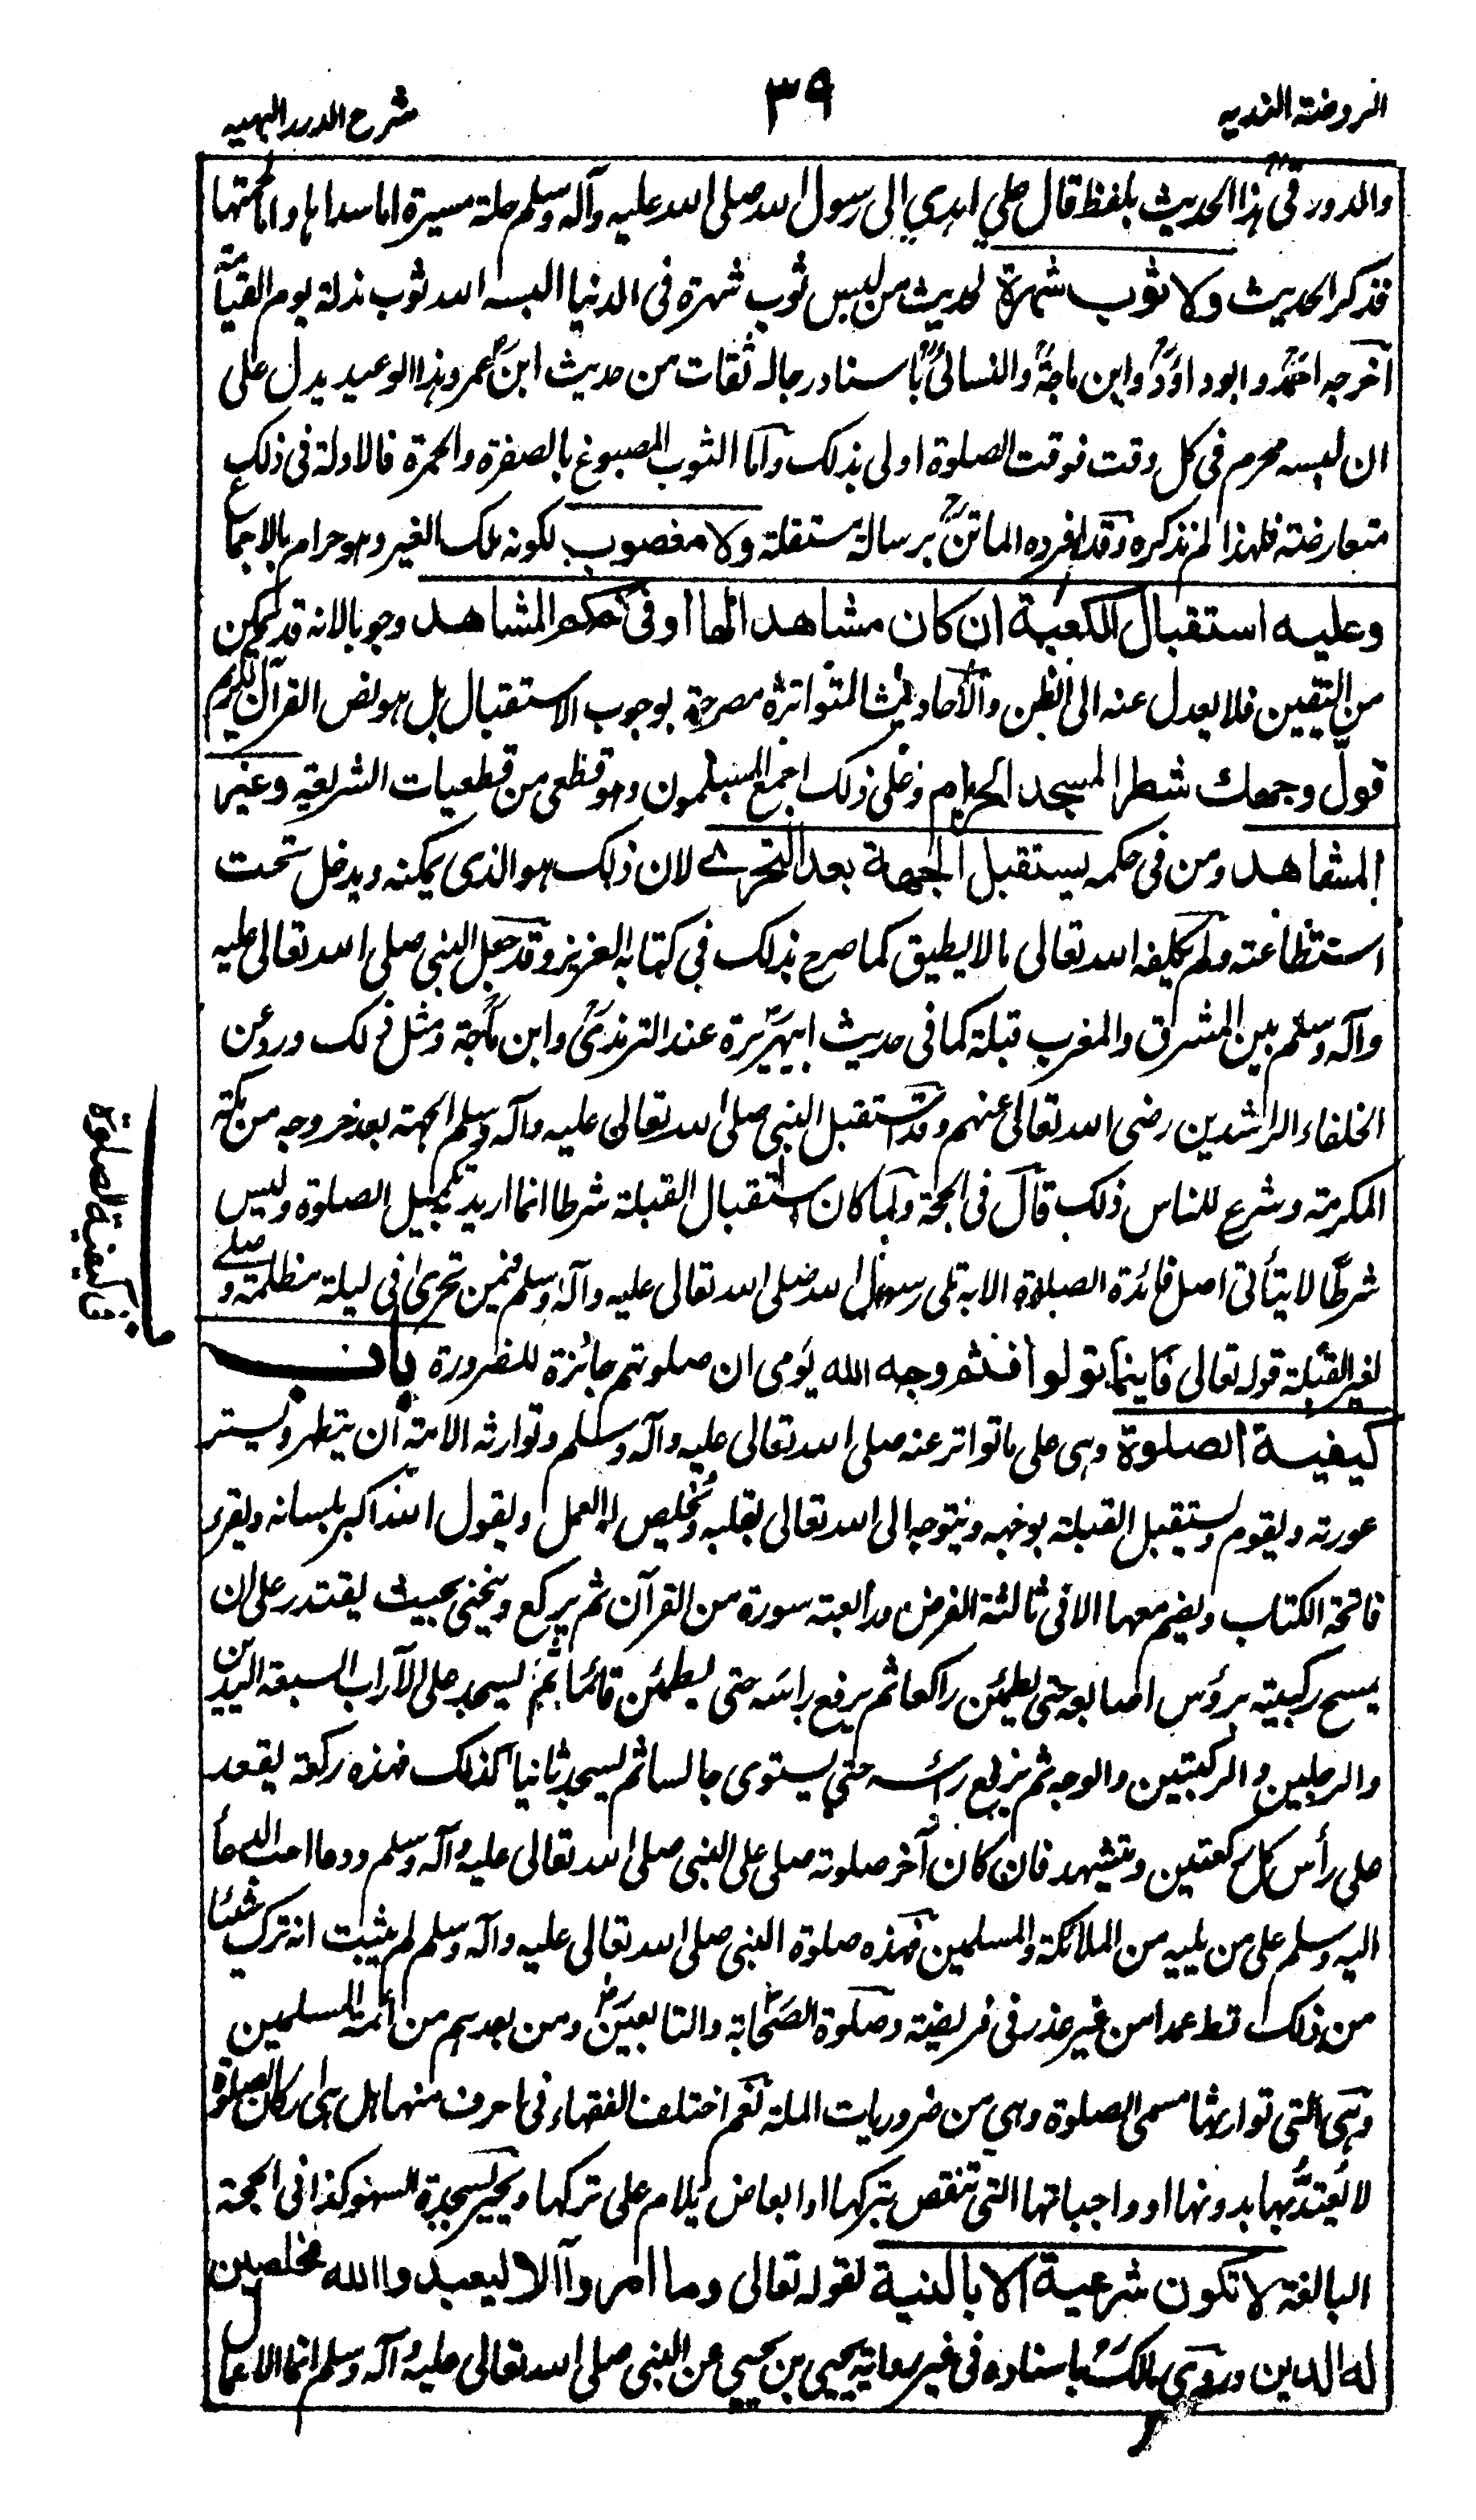 الروضة الندية
٣٩
شرح الدرر البهية
والمدور فى هذا الحديث بلفظ قال على اهدي الى رسول الله صلى الله عليه وآله وسلم حلة مسيرة اما سداها واما لحمتها
فذكر الحديث ولا ثوب شهرة لحديث من لبس ثوب شهرة فى الدنيا البسه الله ثوب مذلة يوم القيامة
أخرجه احمد وابو داؤد وابن ماجة والنسائى باسناد رجاله ثقات من حديث ابن عمر وهذا الوعيد يدل على
ان لبسه محرم فى كل وقت فوقت الصلوة اولى بذلك وأما الثوب المصبوغ بالصفرة والحمرة فالادلة فى ذلك
متعارضة فلهذا لم نذكره وقد افرده الماتن برسالة مستقلة ولا مغصوب لكونه ملك الغير وهو حرام بالاجماع
وعليه استقبال الكعبة ان كان مشاهدا لها او فى حكم المشاهد وجوبا لانه قد تمكن
من اليقين فلا يعدل عنه الى الظن والأحاديث المتواترة مصرحة بوجوب الاستقبال بل هو نص القرآن الكريم
فول وجهك شطر المسجد الحرام وعلى ذلك اجمع المسلمون وهو قطعى من قطعيات الشريعة وغير
المشاهد ومن فى حكمه يستقبل الجهة بعد التحرى لان ذلك هو الذى يمكنه ويدخل تحت
استطاعته ولم يكلفه الله تعالى ما لا يطيق كما صرح بذلك فى كتابه العزيز وقد جعل النبى صلى الله تعالى عليه
وآله وسلم بين المشرق والمغرب قبلة كما فى حديث ابيهريرة عند الترمذى وابن ماجة ومثل ذلك ورد عن
الخلفاء الراشدين رضى الله تعالى عنهم وقد استقبل النبى صلى الله تعالى عليه وآله وسلم الجهة بعد خروجه من مكة
المكرمة وشرع للناس ذلك قال فى الحجة ولما كان استقبال القبلة شرطا انما اريد به تكميل الصلوة وليس
شرطا لا يتأتى اصل فائدة الصلوة الا به تلى رسول الله صلى الله تعالى عليه وآله وسلم فيمن تحرى فى ليلة مظلمة وصلى
لغير القبلة قوله تعالى فاينما تولوا فثم وجه الله يومى ان صلوتهم جائزة للضرورة باب
كيفية الصلوة وهى على ما تواتر عنه صلى الله تعالى عليه وآله وسلم وتوارثه الامة أن يتطهر ويستر
عورته ويقوم ويستقبل القبلة بوجهه ويتوجه الى الله تعالى بقلبه ويخلص له العمل ويقول الله اكبر بلسانه ويقرء
فاتحة الكتاب ويضم معها الا فى ثالثة الفرض ورابعته سورة من القرآن ثم يركع وينحنى بحيث يقتدر على ان
يمسح ركبتيه برؤس اصابعه حتى يطمئن راكعا ثم يرفع راسه حتى يطمئن قائما ثم يسجد على الآراب السبعة اليدين
والرجلين والركبتين والوجه ثم يرفع رأسه حتى يستوى جالسا ثم يسجد ثانيا كذلك فهذه ركعة يقعد
على رأس كل ركعتين ويتشهد فان كان آخر صلوته صلى على النبى صلى الله تعالى عليه وآله وسلم ودعا احب الدعاء
اليه وسلم على من يليه من الملائكة والمسلمين فهذه صلوة النبى صلى الله تعالى عليه وآله وسلم لم يثبت انه ترك شيئا
من ذلك قط عمدا من غير عذر فى فريضة وصلوة الصحابة والتابعين ومن بعدهم من ائمة المسلمين
وهى التى توارثوا مسمى الصلوة وهى من ضروريات الملة نعم اختلف الفقهاء فى احرف منها هل هى اركان الصلوة
لا يعتد بها بدونها او واجباتها التى تنقص بتركها او ابعاض يلام على تركها ويجبر بسجدة السهو كذا فى الحجة
البالغة لا تكون شرعية الا بالنية لقوله تعالى وما امروآ الا ليعبدوا الله مخلصين
له الدين وروى مالك باسناده فى غير رواية يحيى بن يحيى عن النبى صلى الله تعالى عليه وآله وسلم انما الاعمال
كيفية الصلوة